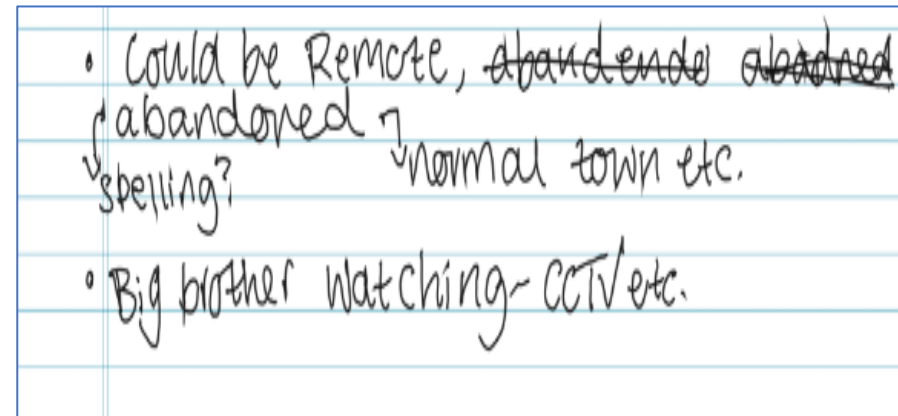 • Could be Remote, abandende abadned
abandoned
normal town etc.
spelling?
• Big brother watching - CCTV etc.